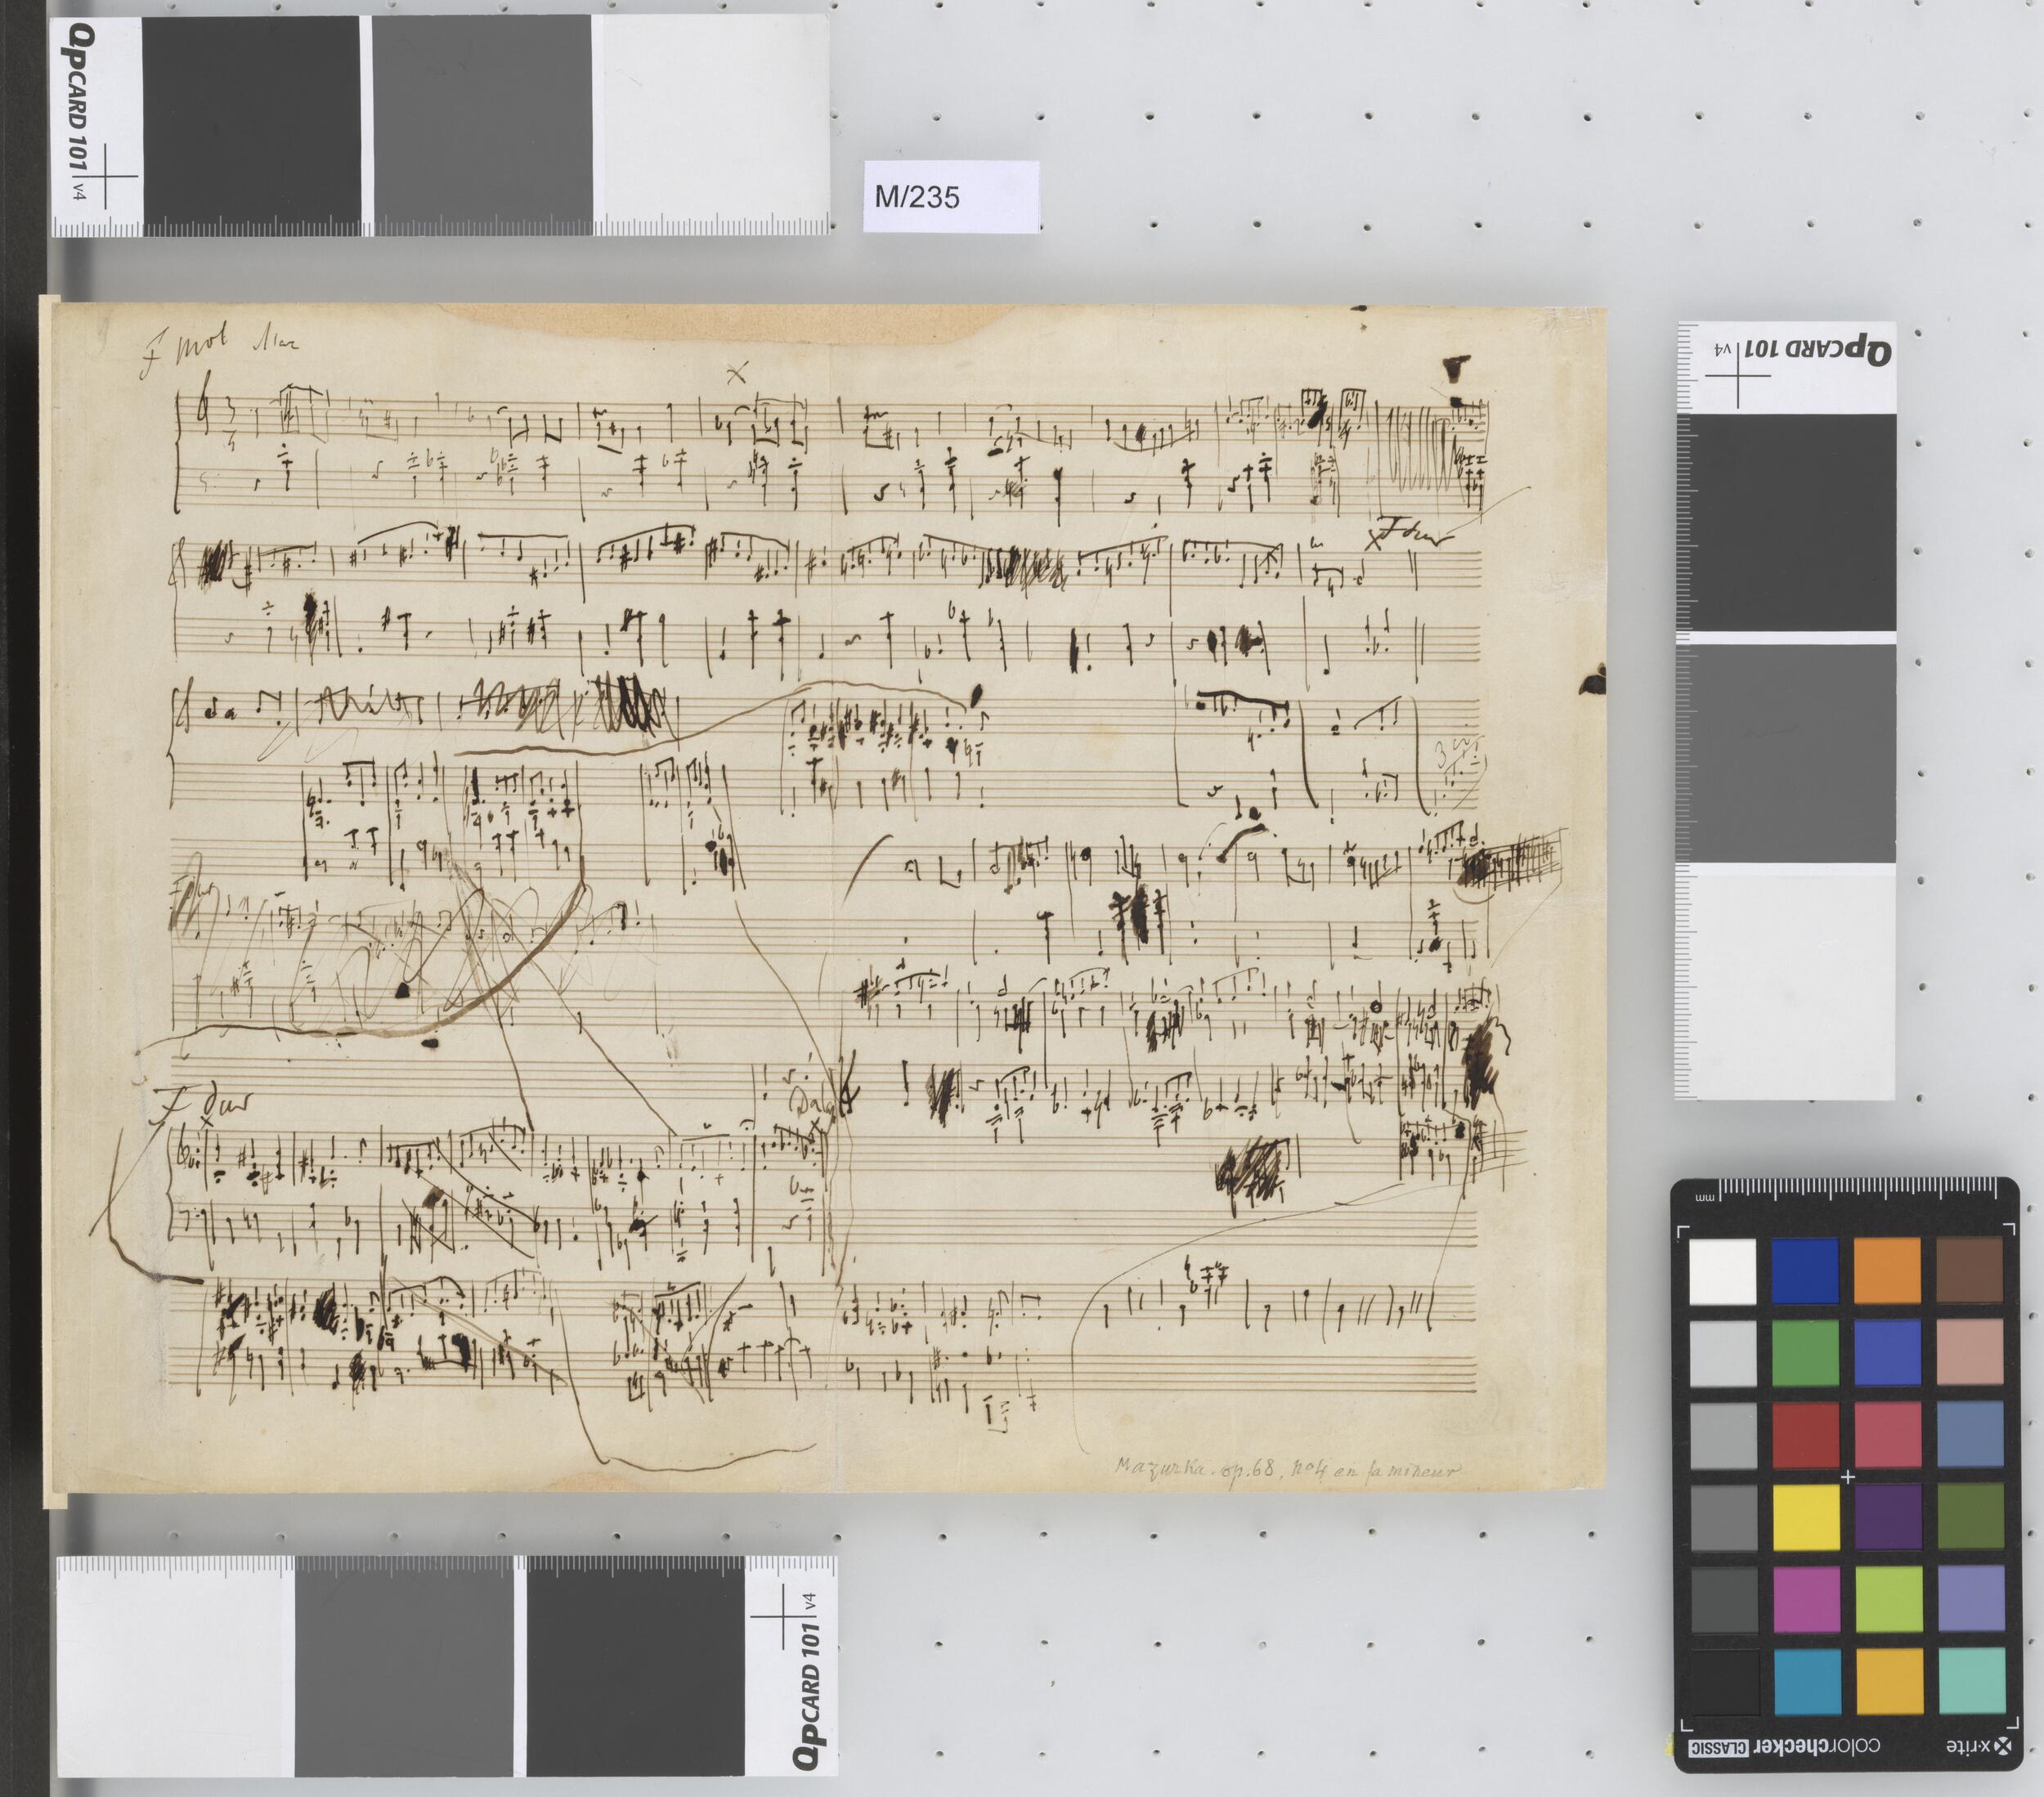 QPCARD 101 v4
M/235
QPCARD 101 v4
F mol Maz
F dur
F dur
Mazurka. op. 68. no 4 en fa mineur
QPCARD 101 v4
mm
colorchecker CLASSIC
x-rite